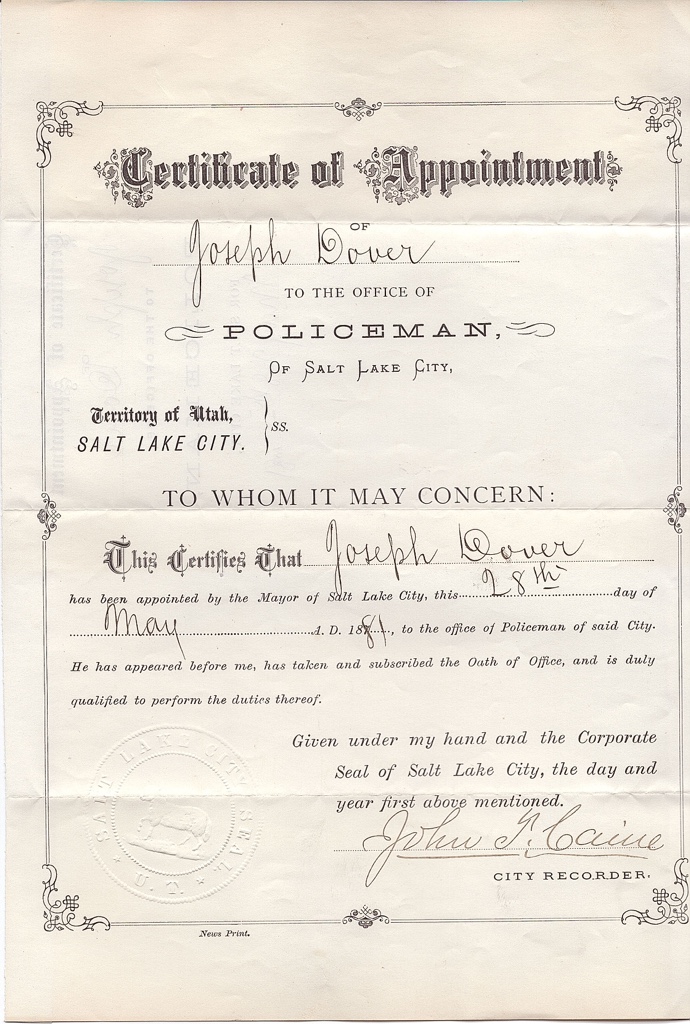 Certificate of Appointment
OF
Joseph Dover
TO THE OFFICE OF
POLICEMAN,
OF SALT LAKE CITY,
Territory of Utah,
SALT LAKE CITY. } SS.
TO WHOM IT MAY CONCERN:
This Certifies That Joseph Dover
has been appointed by the Mayor of Salt Lake City, this 28th day of
May A. D. 1881, to the office of Policeman of said City.
He has appeared before me, has taken and subscribed the Oath of Office, and is duly
qualified to perform the duties thereof.
Given under my hand and the Corporate
Seal of Salt Lake City, the day and
year first above mentioned.
John T. Caine
CITY RECORDER.
SALT LAKE CITY SEAL
U. T.
News Print.